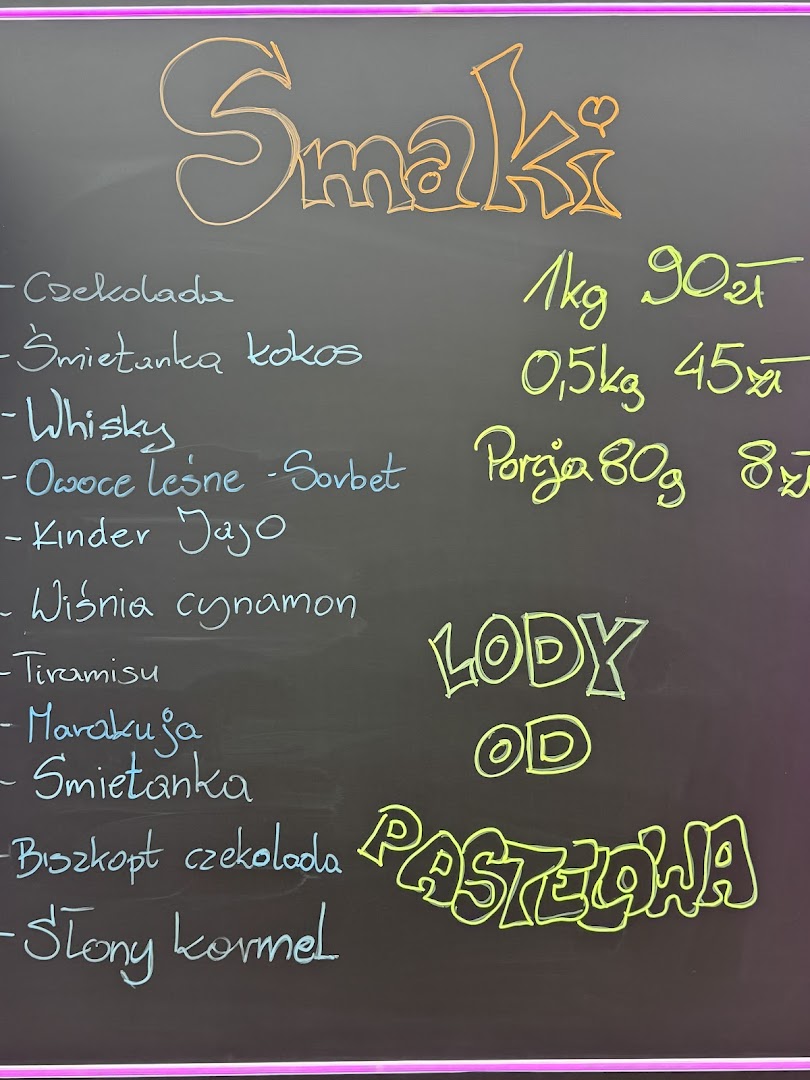 Smaki
- Czekolada
- Śmietanka kokos
- Whisky
- Owoce leśne - Sorbet
- Kinder Jajo
- Wiśnia cynamon
- Tiramisu
- Marakuja
- Śmietanka
- Biszkopt czekolada
- Słony karmel
1kg 90zł
0,5kg 45zł
Porcja 80g 8zł
LODY
OD
PASTELOWA